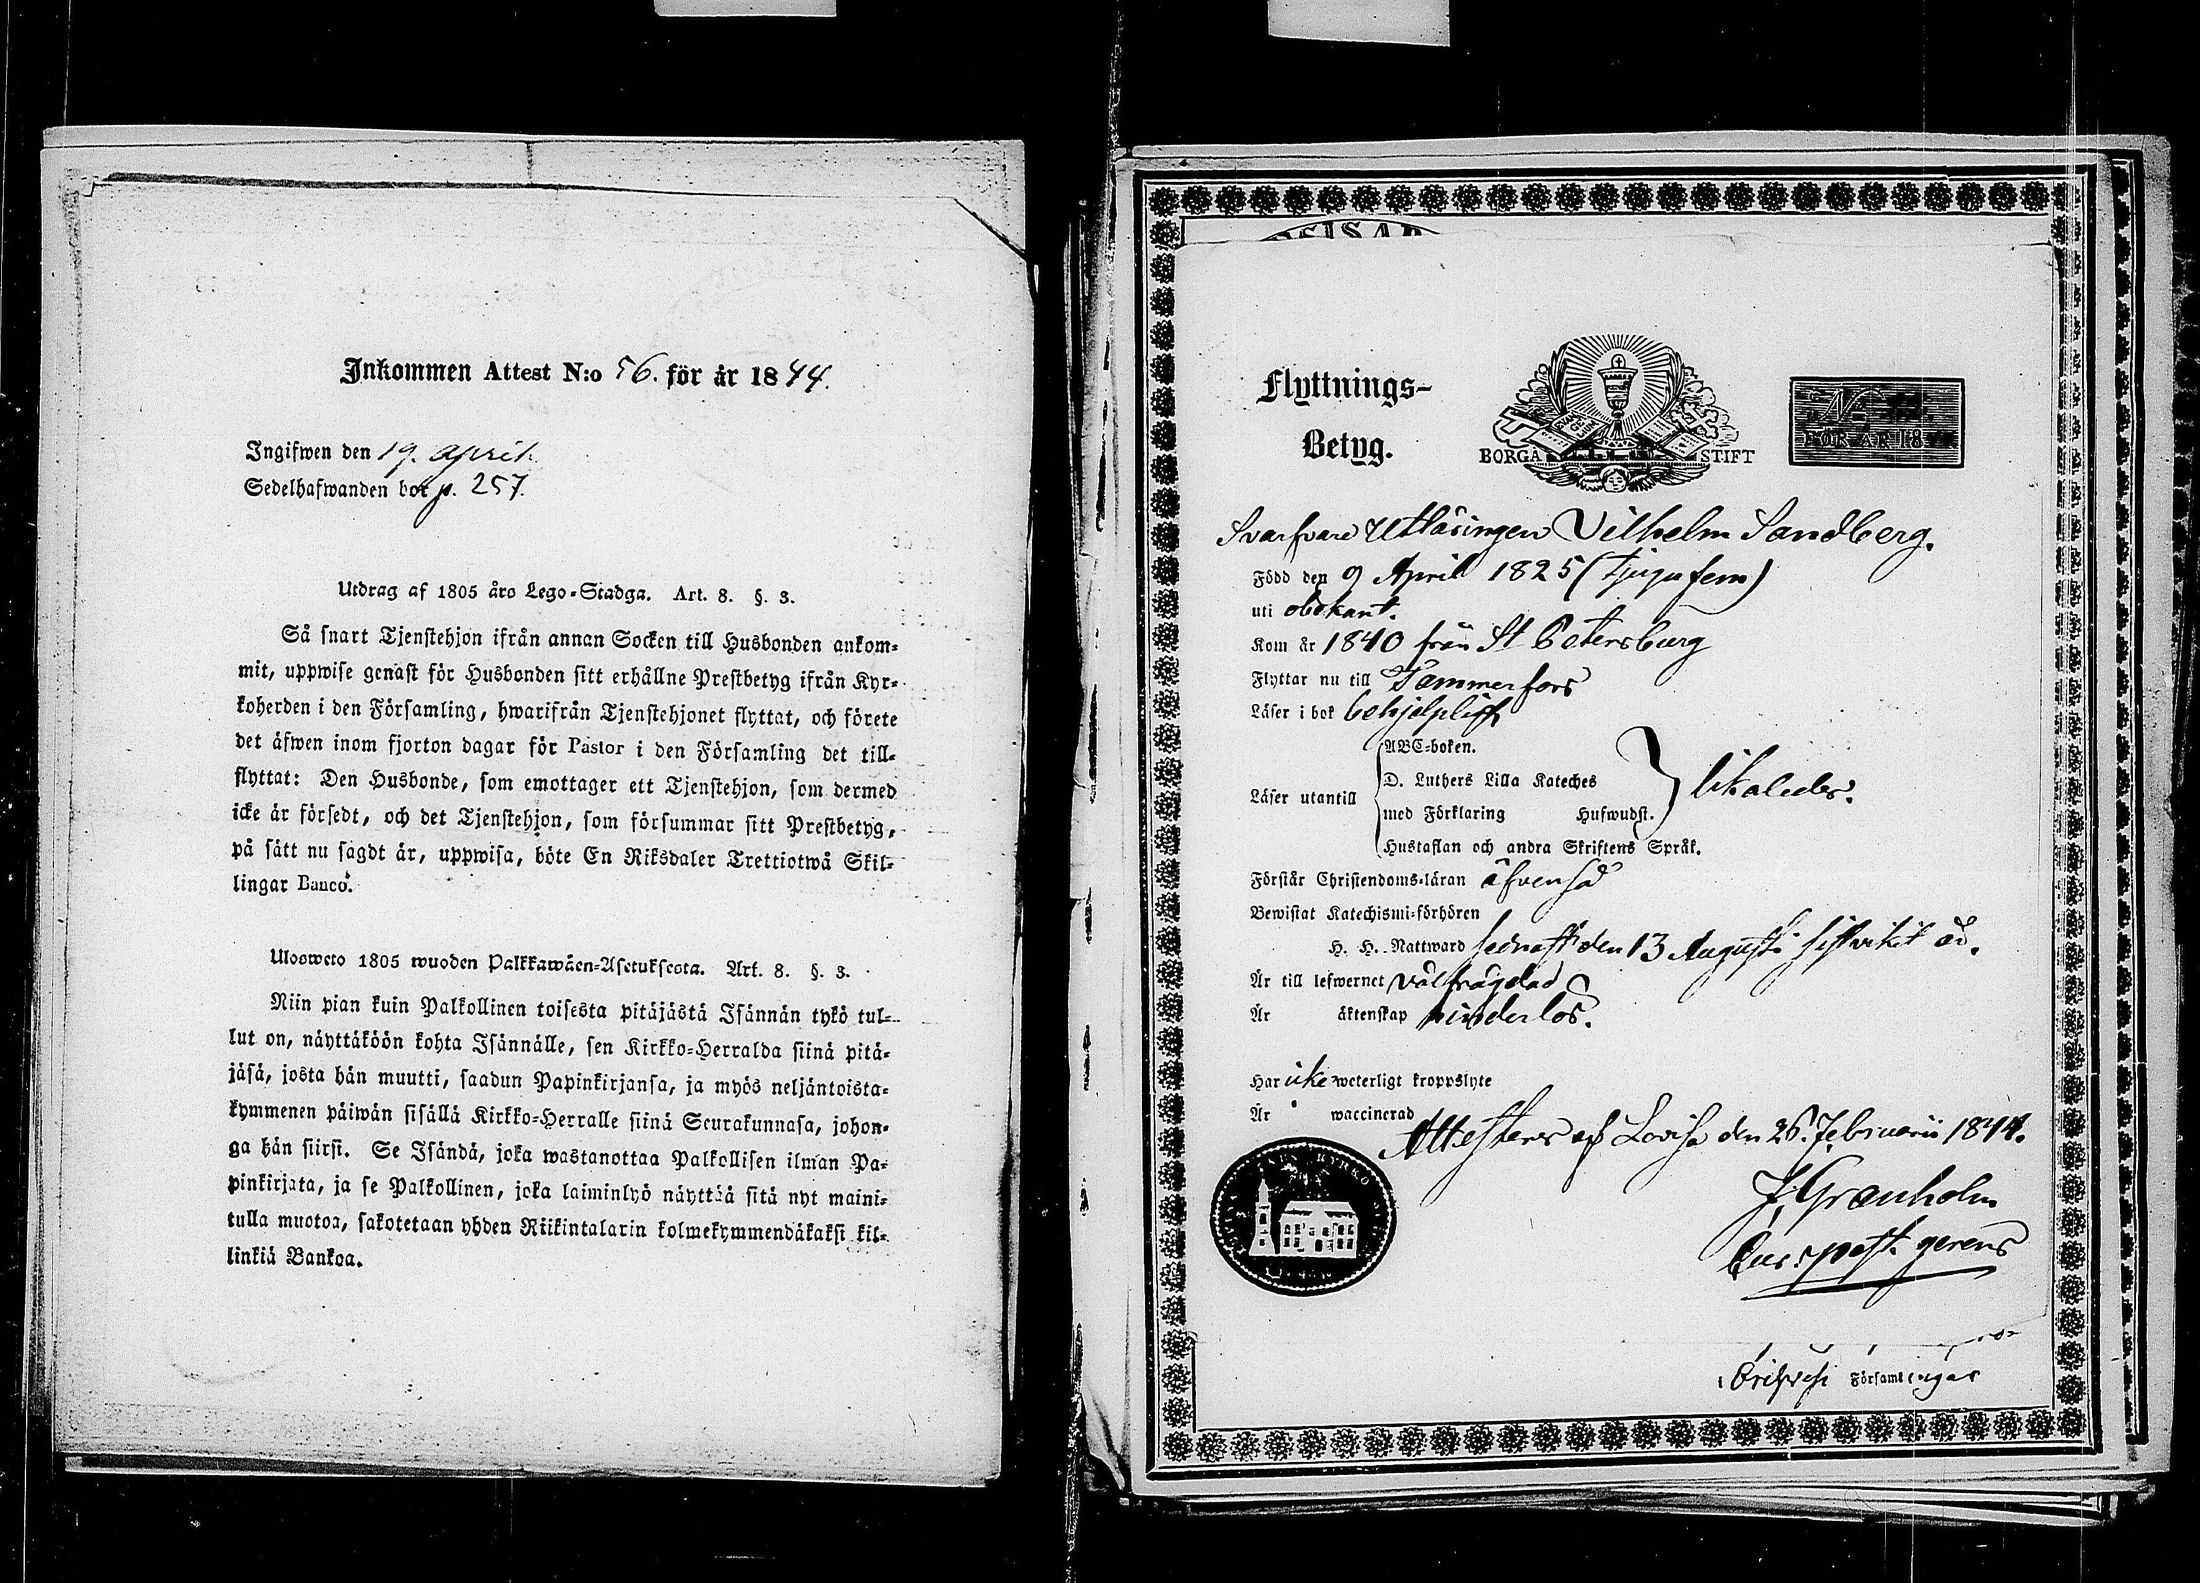 Inkommen Attest N:o 56. för år 1844.
Ingifwen den 19. april.
Sedelhafwanden bor p. 257.
Utdrag af 1805 års Lego-Stadga. Art. 8. §. 3.
Så snart Tjenstehjon ifrån annan Socken till Husbonden ankom-
mit, uppwise genast för Husbonden sitt erhållne Prestbetyg ifrån Kyr-
koherden i den Församling, hwarifrån Tjenstehjonet flyttat, och förete
det äfwen inom fjorton dagar för Pastor i den Församling det till-
flyttat: Den Husbonde, som emottager ett Tjenstehjon, som dermed
icke är försedt, och det Tjenstehjon, som försummar sitt Prestbetyg,
på sätt nu sagdt är, uppwisa, böte En Riksdaler Trettiotwå Skil-
lingar Banco.
Ulosweto 1805 wuoden Palkkawäen-Asetuksesta. Art. 8. §. 3.
Niin pian kuin Palkollinen toisesta pitäjästä Isännän tykö tul-
lut on, näyttäköön kohta Isännälle, sen Kirkko-Herralda siinä pitä-
jäsä, josta hän muutti, saadun Papinkirjansa, ja myös neljäntoista-
kymmenen päiwän sisällä Kirkko-Herralle siinä Seurakunnasa, johon-
ga hän siirsi. Se Isändä, joka wastanottaa Palkollisen ilman Pa-
pinkirjata, ja se Palkollinen, joka laiminlyö näyttää sitä nyt maini-
tulla muotoa, sakotetaan yhden Riikintalarin kolmekymmendäkaksi kil-
linkiä Bankoa.
Flyttnings-
Betyg.
BORGÅ STIFT
FÖR ÅR 18
Svarfvare Utlärlingen Vilhelm Sandberg.
Född den 9 April 1825 (tjugufem)
uti obekant.
Kom år 1840 från St Petersburg
Flyttar nu till Tammerfors
Läser i bok behjelpligt
Läser utantill
ABC-boken.
D. Luthers Lilla Kateches
med Förklaring Hufwudst.
Hustaflan och andra Skriftens Språk.
likaledes.
Förstår Christendoms-läran äfvenså
Bewistat Katechismi-förhören
H. H. Nattward sednast den 13 Augusti sistvikit år.
Är till lefwernet välfrägdad
Är äktenskap hinderlös.
Har icke weterligt kroppslyte
Är waccinerad
Attesteras af Lovisa den 26. Februarii 1844.
J. Grænholm
past. gerens
i Församlingar